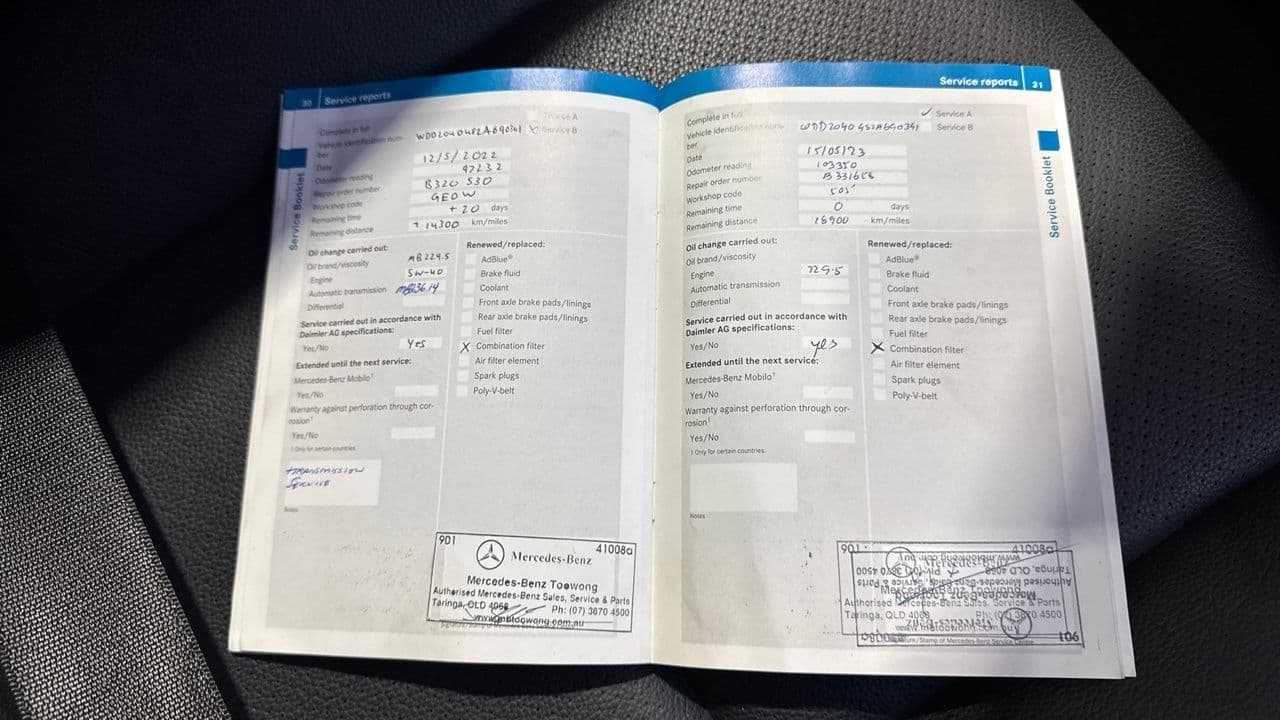 30 Service reports
Complete in full
Service A
Vehicle identification num-
ber
WDD2040482A690341 X Service B
Date 12/5/2022
Odometer reading 97232
Repair order number B320 530
Workshop code GEOW
Remaining time +20 days
Remaining distance + 14300 km/miles
Oil change carried out:
Oil brand/viscosity MB229.5
Engine 5W-40
Automatic transmission MB236.14
Differential
Service carried out in accordance with
Daimler AG specifications:
Yes/No Yes
Extended until the next service:
Mercedes-Benz Mobilo¹
Yes/No
Warranty against perforation through cor-
rosion¹
Yes/No
1 Only for certain countries.
+TRANSMISSION
SERVICE
Notes
Renewed/replaced:
AdBlue®
Brake fluid
Coolant
Front axle brake pads/linings
Rear axle brake pads/linings
Fuel filter
X Combination filter
Air filter element
Spark plugs
Poly-V-belt
901 41008a
Mercedes-Benz
Mercedes-Benz Toowong
Authorised Mercedes-Benz Sales, Service & Parts
Taringa, QLD 4068 Ph: (07) 3870 4500
www.mbtoowong.com.au
Service Booklet
Service reports 31
Complete in full
✓ Service A
Vehicle identification num-
ber
Service B
Date 15/05/23
Odometer reading 103350
Repair order number
Workshop code
Remaining time 0 days
Remaining distance 18900 km/miles
Oil change carried out:
Oil brand/viscosity
Engine 229.5
Automatic transmission
Differential
Service carried out in accordance with
Daimler AG specifications:
Yes/No yes
Extended until the next service:
Mercedes-Benz Mobilo¹
Yes/No
Warranty against perforation through cor-
rosion¹
Yes/No
1 Only for certain countries.
Notes
Renewed/replaced:
AdBlue®
Brake fluid
Coolant
Front axle brake pads/linings
Rear axle brake pads/linings
Fuel filter
X Combination filter
Air filter element
Spark plugs
Poly-V-belt
901 41008a
Mercedes-Benz
Mercedes-Benz Toowong
Authorised Mercedes-Benz Sales, Service & Parts
Taringa, QLD 4068 Ph: (07) 3870 4500
Signature/Stamp of Mercedes-Benz Service Centre
Service Booklet